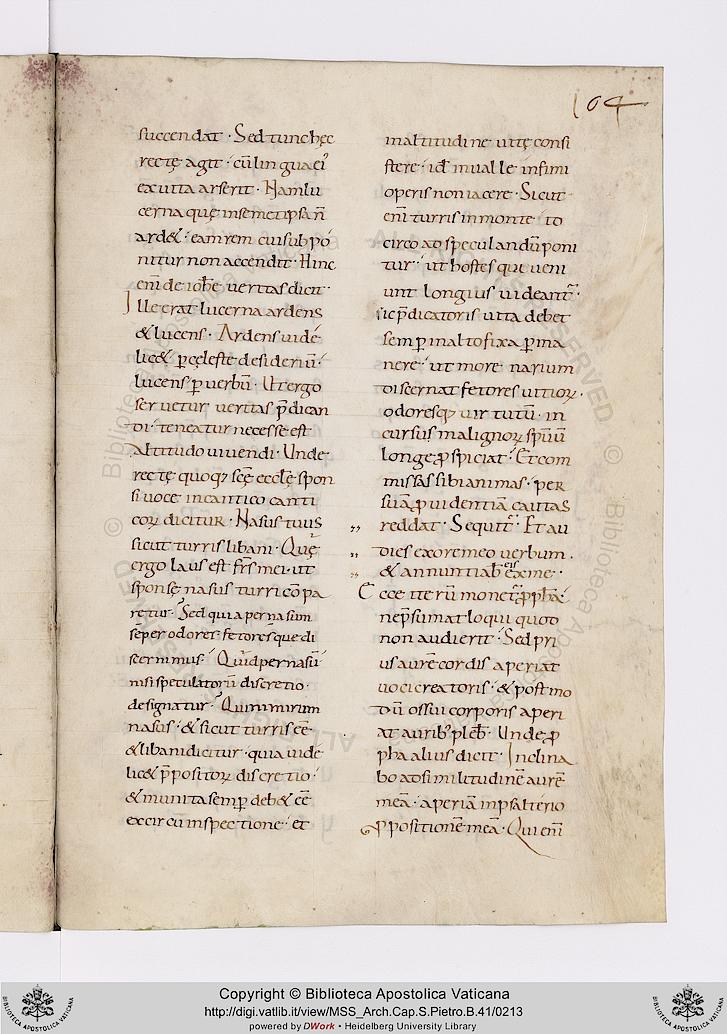 104
succendat · Sed tunc hęc
rectę agit · cū lingua ei'
ex uita arserit · Nam lu
cerna quę in semetipsa ñ
ard& · eam rem cui subpo
nitur non accendit · Hinc
eni de ioħe ueritas dicit ·
Ille erat lucerna ardens
& lucens · Ardens uide
lic& p cęleste desideriū ·
lucens p uerbū · Ut ergo
seruetur ueritas p̄dican
di · teneatur necesse est
altitudo uiuendi · Unde
rectę quoq; scę ecclę spon
si uoce in cantico canti
corꝝ dicitur · Nasus tuus
sicut turris libani · Quę
ergo laus est frs mei · ut
sponsę nasus turri cōpa
retur · Sed quia per nasum
semper odores fetoresque di
scernimus · Quid per nasū
nisi speculatorū discretio
designatur · Qui nimirum
nasus · & sicut turris cē
& libani dicitur · quia uide
lic& p̄positorꝝ discretio
& munita semp deb& cē
ex circuinspectione · et
in altitudine uitę consi
stere · id' in ualle infimi
operis non iacere · Sicut
eni turris in monte · id
circo ad speculandū poni
tur · ut hostes qui ueni
unt longius uideant̄ ·
sic p̄dicatoris uita debet
semp in alto fixa pma
nere · ut more narium
discernat fetores uitiorꝝ ·
odoresq; uirtutū · in
cursus malignorꝝ spūū
longe pspiciat · Et com
missas sibi animas · per
suā puidentiā cautas
reddat · Sequit̄ · Et au
dies ex ore meo uerbum ·
& annuntiab eis ex me ·
Ecce iterū monet̄ ppha ·
ne p̄sumat loqui quod
non audierit · Sed pri
us aurē cordis aperiat
uoci creatoris · & postmo
dū os sui corporis aperi
at aurib' pleb · Unde p
pha alius dicit · Inclina
bo ad similitudinē aurē
meā · aperiā in psalterio
ppositionē meā · Qui eni
Copyright © Biblioteca Apostolica Vaticana
http://digi.vatlib.it/view/MSS_Arch.Cap.S.Pietro.B.41/0213
powered by DWork · Heidelberg University Library